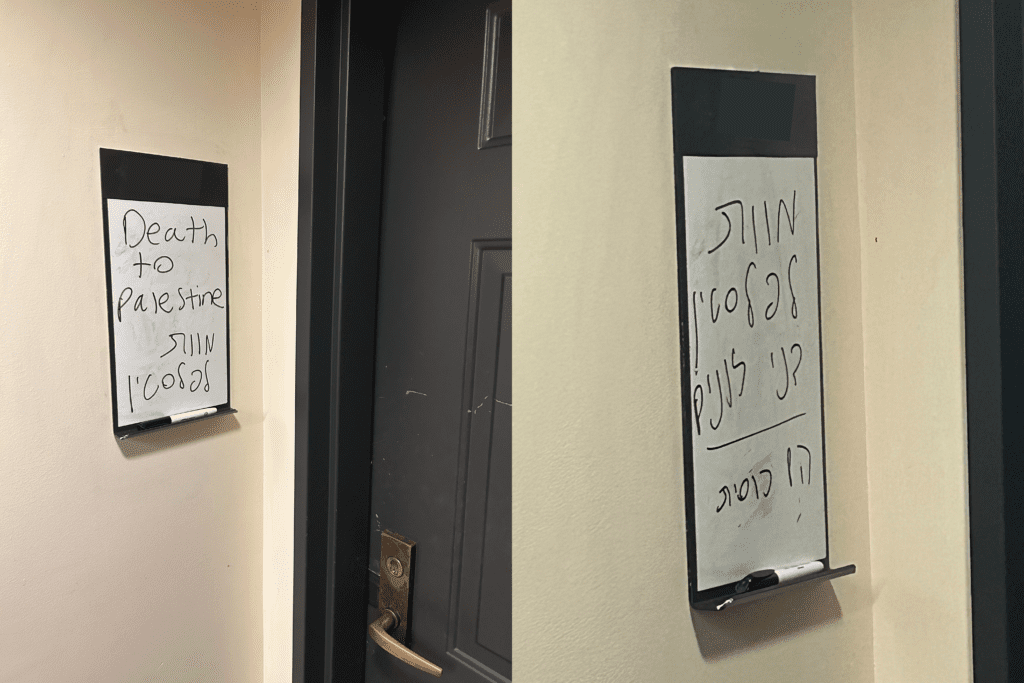 Death
to
Palestine
מוות
לפלסטין
מוות
לפלסטין
כוסית